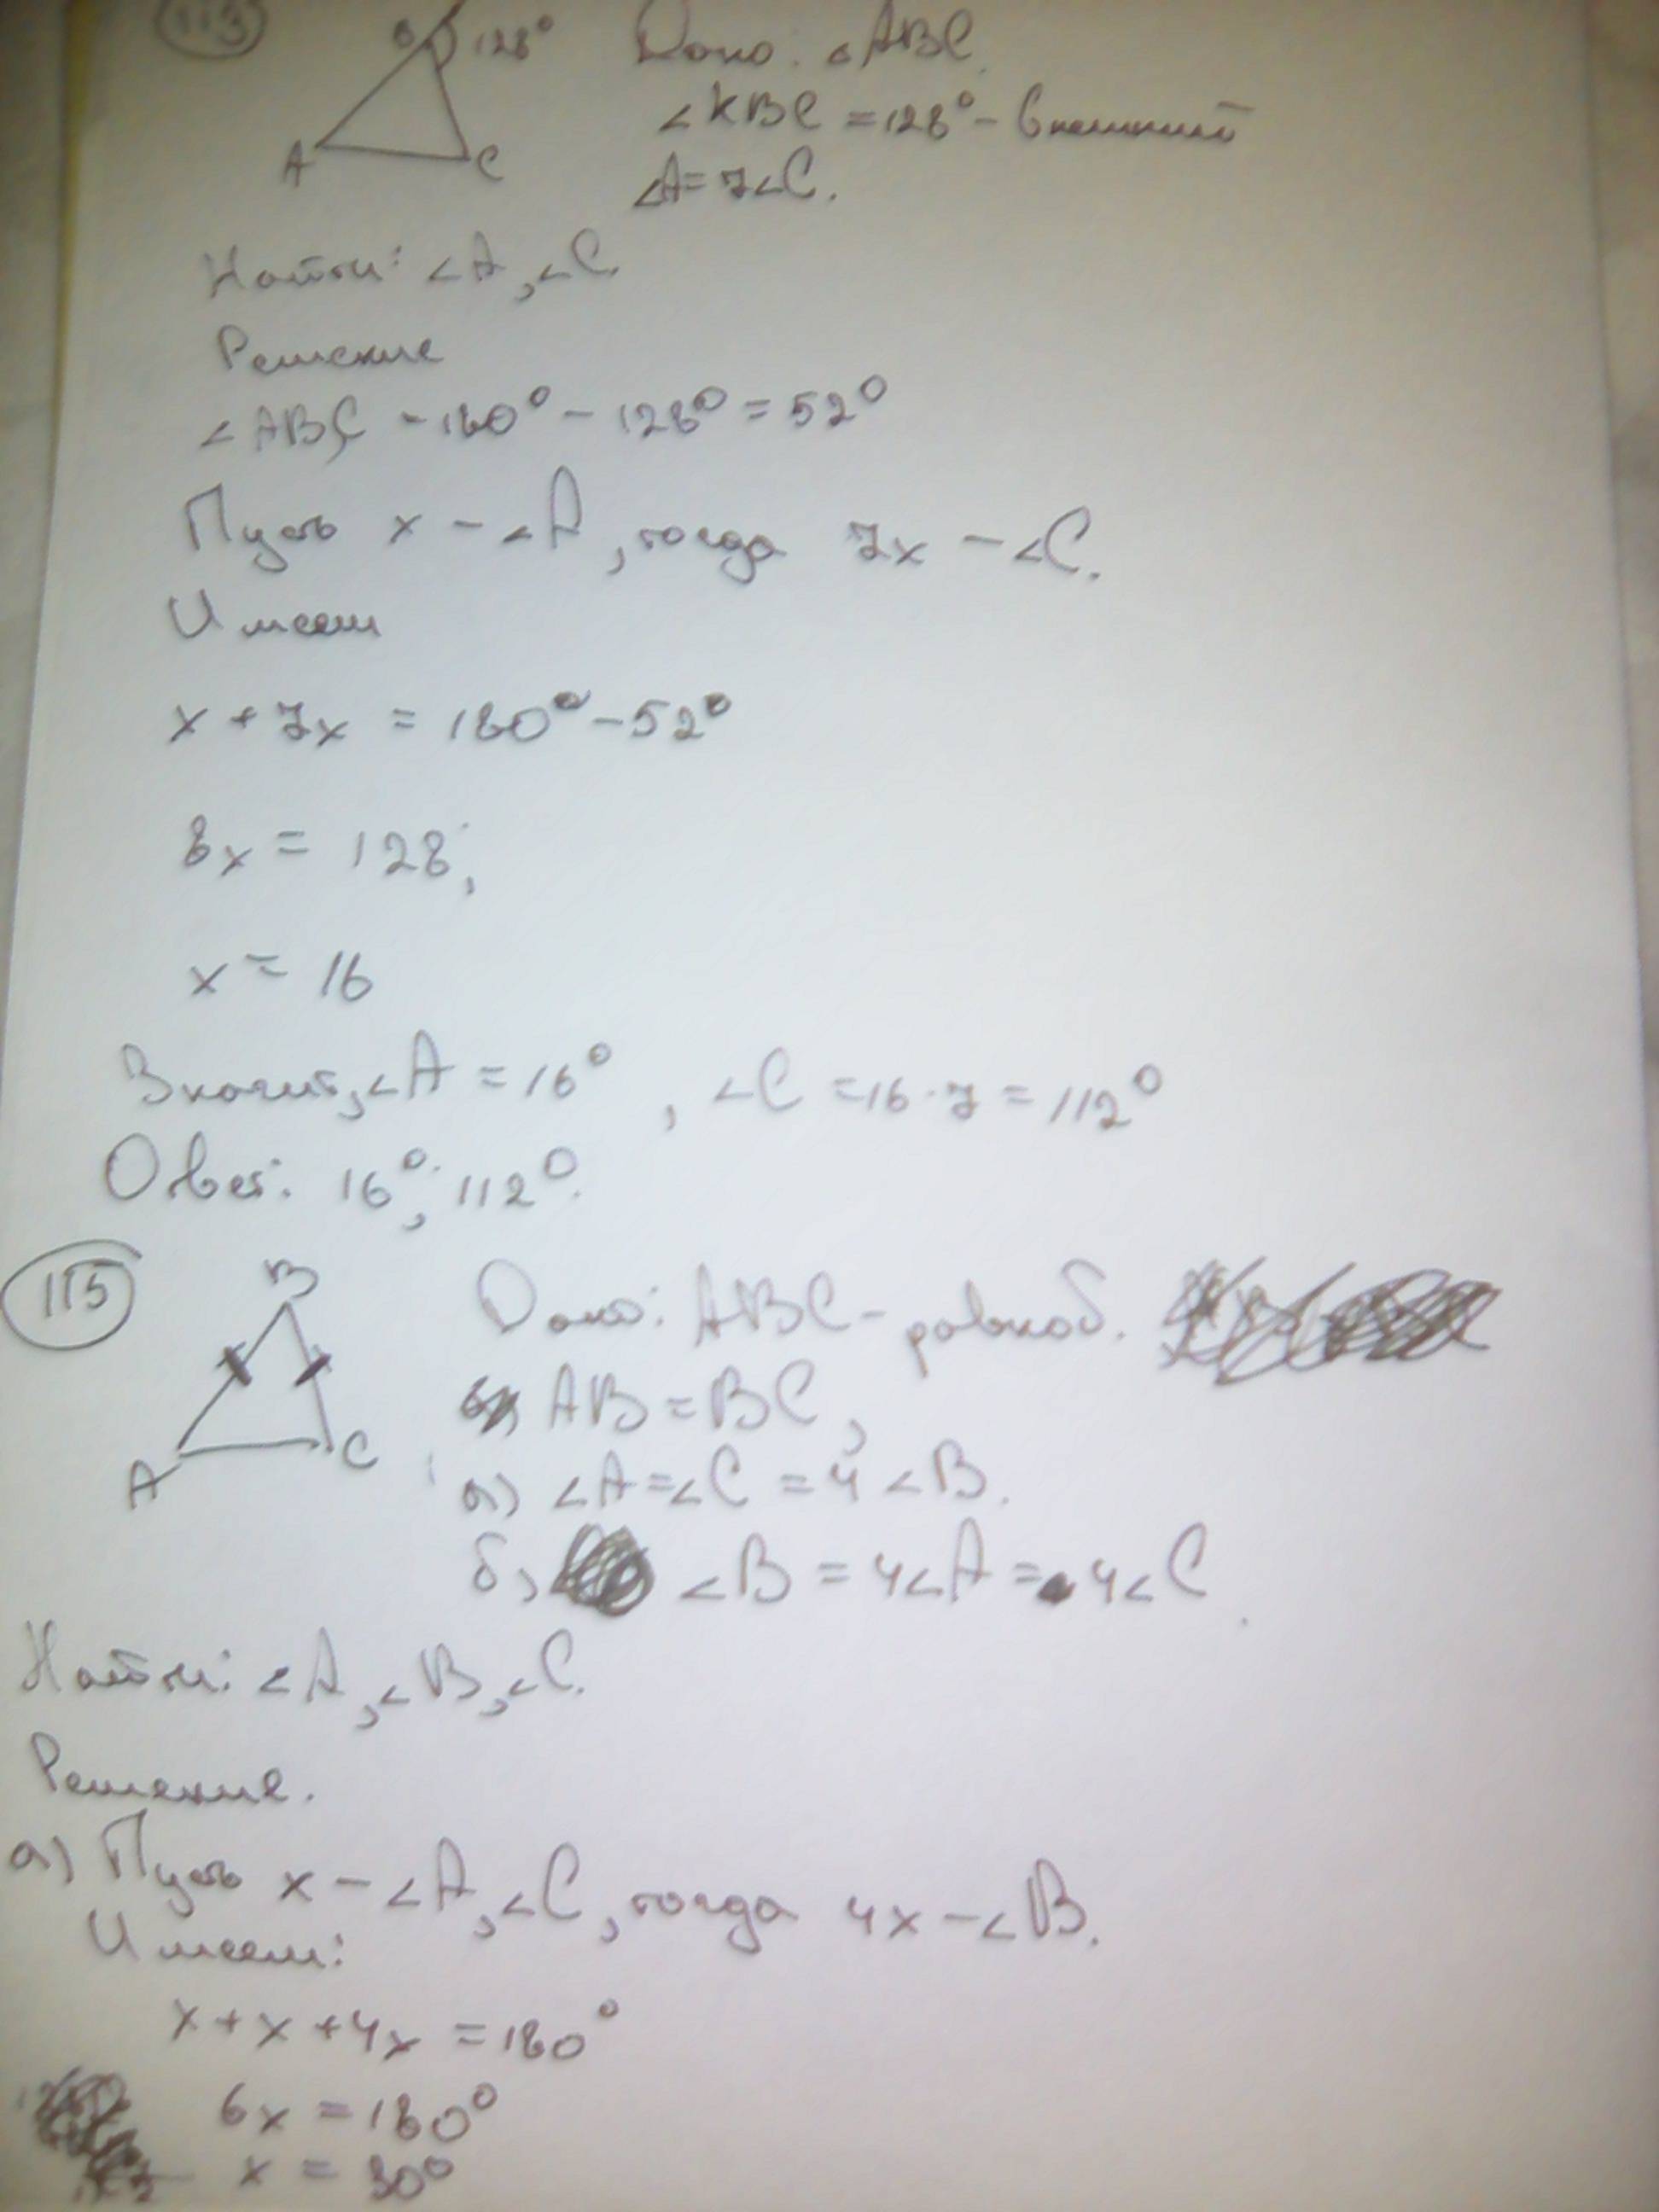 113
B 128° Дано: △ABC.
∠KBC = 128° - внешний
A C ∠A = 7∠C.
Найти: ∠A, ∠C.
Решение
∠ABC - 180° - 128° = 52°
Пусть x - ∠A, тогда 7x - ∠C.
Имеем
x + 7x = 180° - 52°
8x = 128;
x = 16
Значит, ∠A = 16°, ∠C = 16 · 7 = 112°
Ответ: 16°; 112°.
115 B Дано: ABC - равноб.
AB = BC,
A C а) ∠A = ∠C = 4∠B.
б) ∠B = 4∠A = 4∠C.
Найти: ∠A, ∠B, ∠C.
Решение.
а) Пусть x - ∠A, ∠C, тогда 4x - ∠B.
Имеем:
x + x + 4x = 180°
6x = 180°
x = 30°